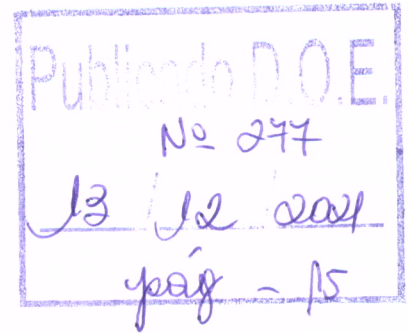 Publicado D.O.E.
Nº 277
13 / 12 2021
pág - 15